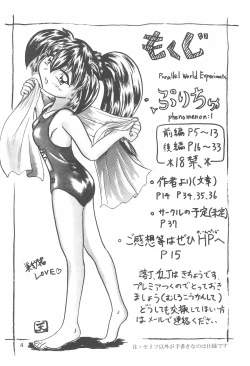 もくじ
Parallel World Experiments
ぷりちゅ
phenomenon:1
前編 P5〜13
後編 P16〜33
*18禁、*
・作者より(文章)
P14 P34.35.36
・サークルの予定(未定)
P37
・ご感想等はぜひHPへ
P15
LOVE♡
乱丁はきちょうです。
プレミアつくのでとっておき
ましょう(むしろこうかんして)
どうしても交換してほしい方
はメールで連絡ください。
4
注・セリフ以外が手書きなのは仕様です